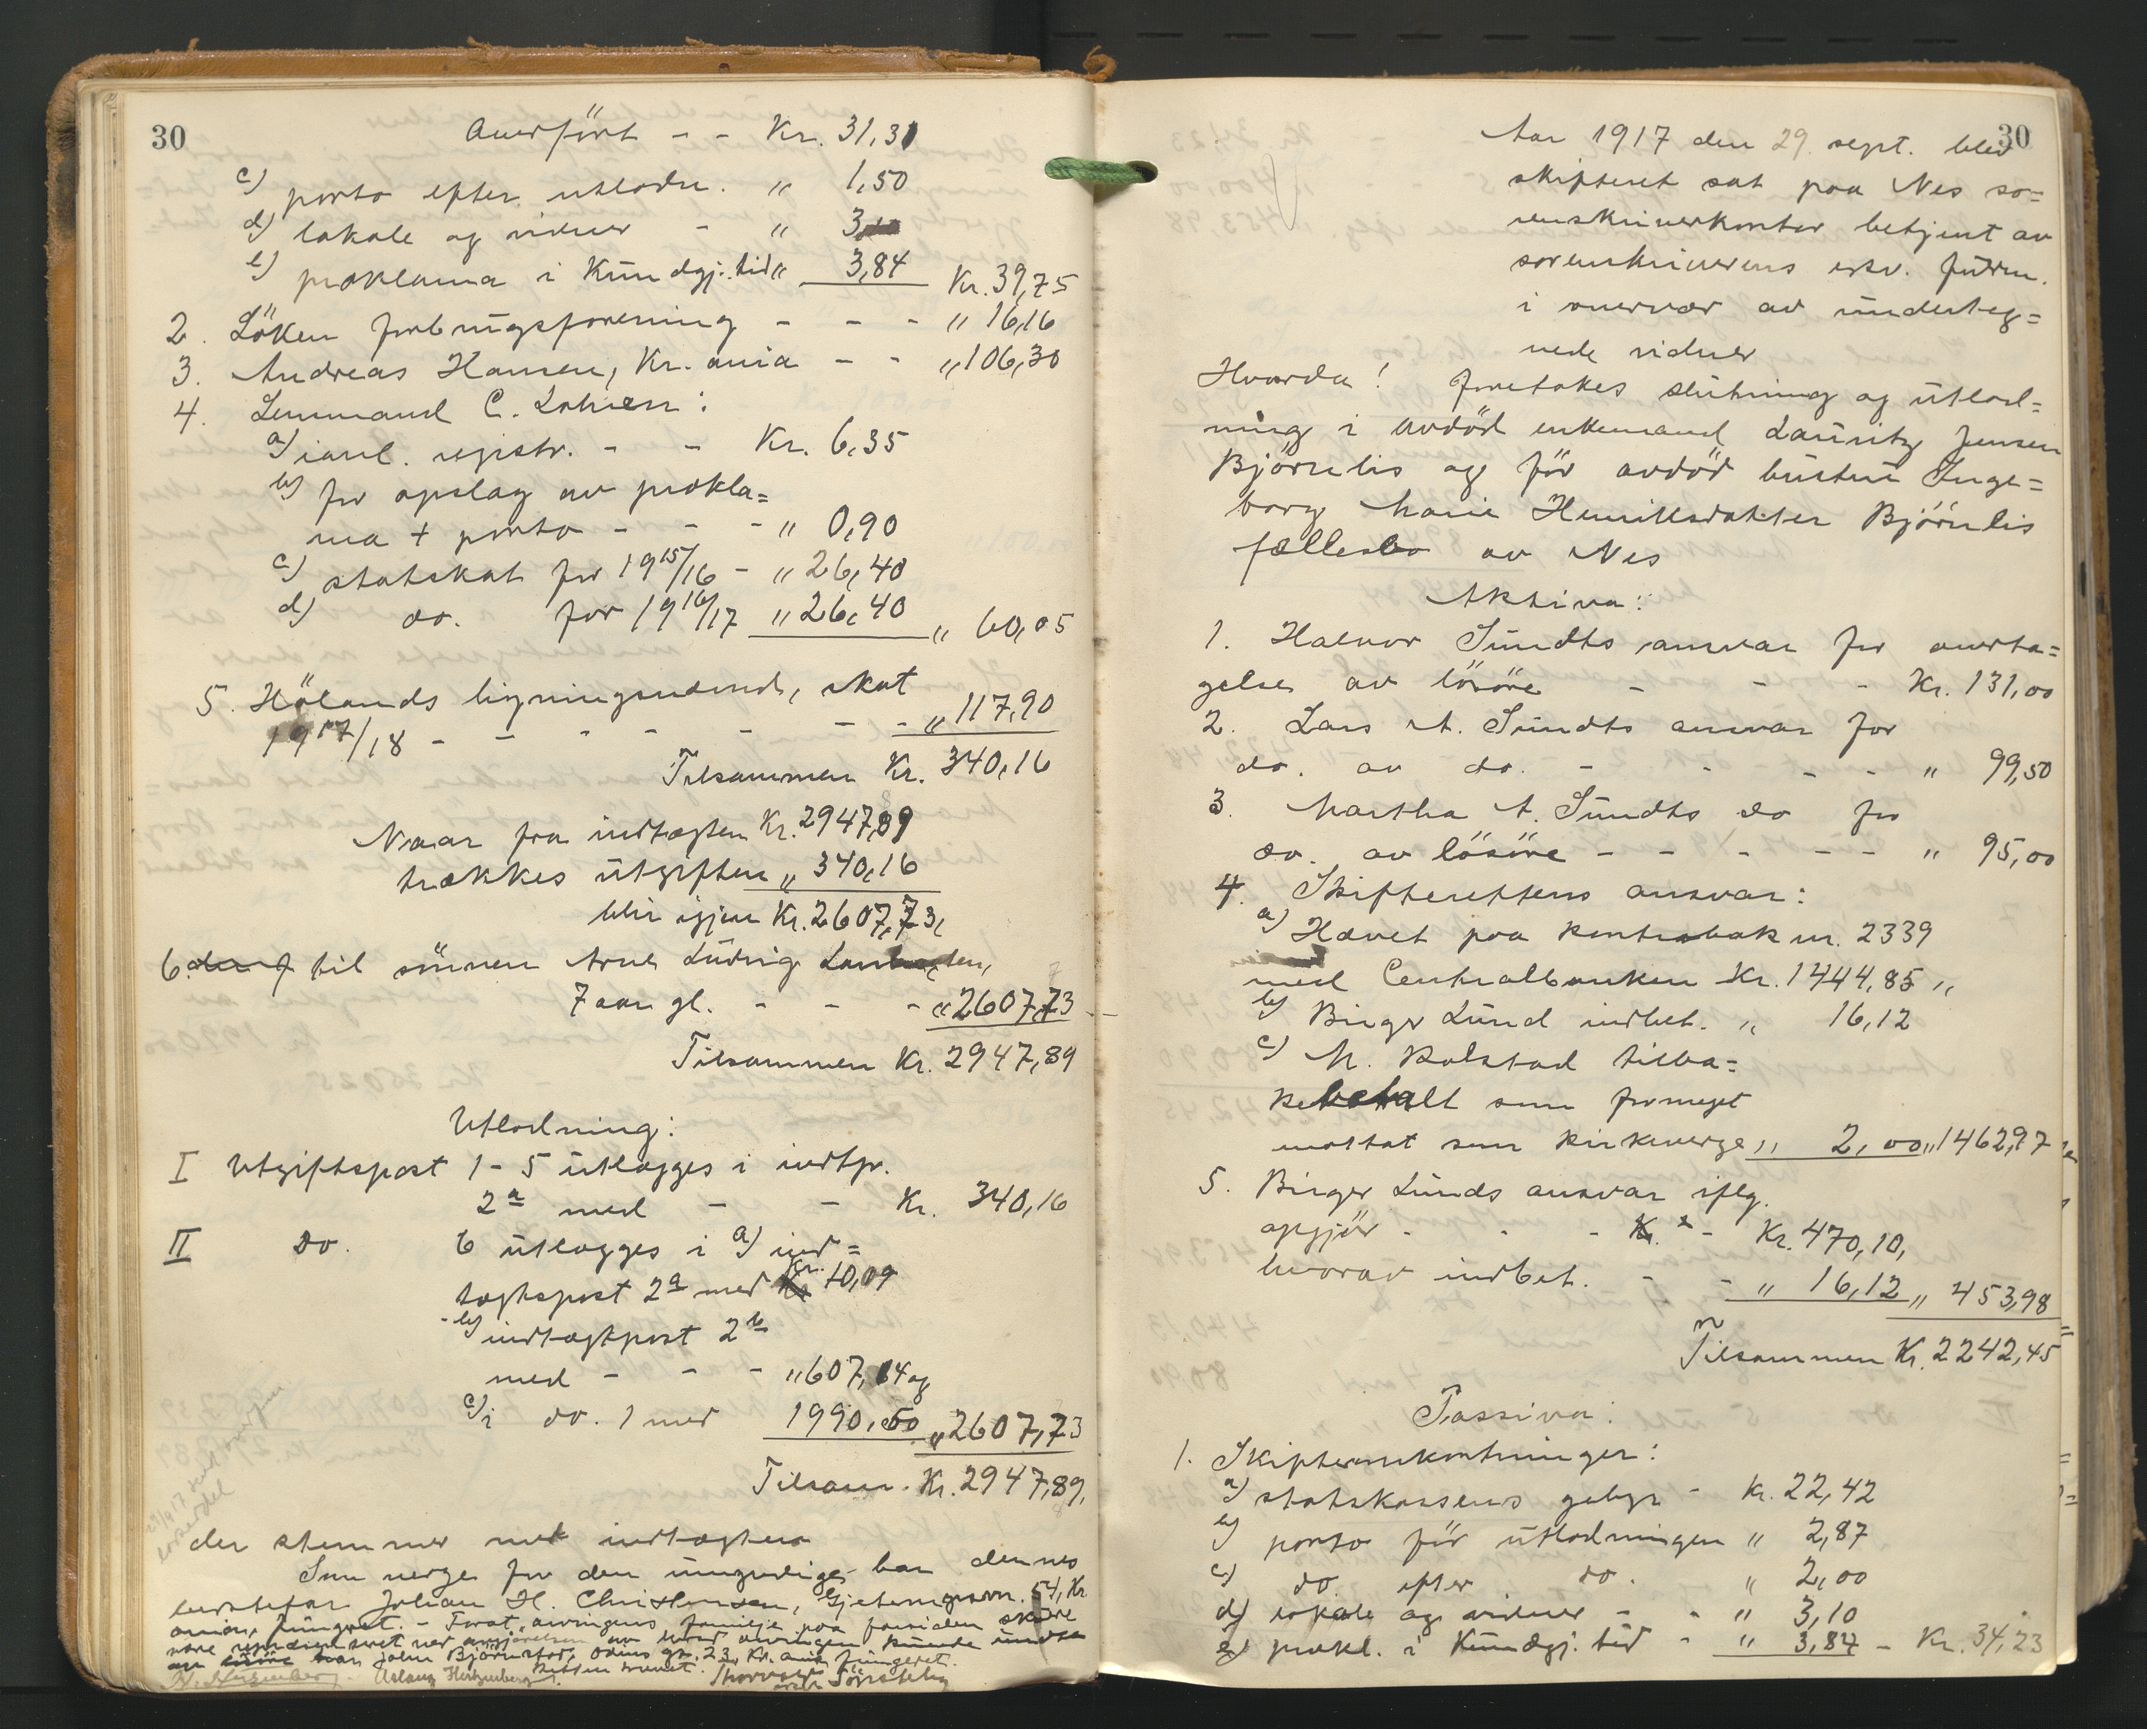 30
Overført - - Kr. 31,31
c) porto efter utlodn. " 1,50
d) lokale og vidner - " 3,10
e) proklama i Kundgj. tid " 3,84 Kr. 39,75
2. Löken forbrugsforening - - - " 16,16
3. Andreas Hansen, Kr.ania - - " 106,30
4. Lensmand C. Lohien:
a) ianl. registr. - - Kr. 6,35
b) for opslag av prokla=
ma + porto - - - " 0,90
c) statskat for 1915/16 - " 26,40
d) do. for 1916/17 " 26,40 " 60,05
5. Hölands ligningsnævnd, skat
1917/18 - - - - - - " 117,90
Tilsammen Kr. 340,16
Naar fra indtægten Kr. 2947,89
trækkes utgiften " 340,16
blir igjen Kr. 2607,73,
6. til sönnen Arne Ludvig
7 aar gl. - - - " 2607,73
Tilsammen Kr. 2947,89
Utlodning:
I Utgiftspost 1-5 utlægges i indtp.
2a med - - Kr. 340,16
II Do. 6 utlægges i a) ind=
tægtspost 2a med Kr. 10,09
b) indtægtpost 2b
med - - - " 607,14 og
c) i do. 1 med 1990,50 " 2607,73
Tilsam. Kr. 2947,89,
der stemmer med indtægten
Som verge for den umyndige har dennes
Johan H. Christensen, 54, Kr.
ania, fungeret. -
John 23, Kr. ania fungeret.
Retten hævet.
Aslaug Hertzenberg.
30
Aar 1917 den 29. sept. blev
skifteret sat paa Nes so=
renskriverkontor betjent av
sorenskriverens edsv. fuldm.
i overvær av underteg=
nede vidner
Hvorda! foretokes slutning og utlod=
ning i avdöd enkemand Lauritz Jensen
Björnlis og för avdöd hustru Inge=
borg Marie Henriksdatter Björnlis
fællesbo av Nes
Aktiva:
1. Halvor Sundts ansvar for overta=
gelse av lösöre - - - Kr. 131,00
2. Lars A. Sundts ansvar for
do. av do. - - - - " 99,50
3. Martha A. Sundts do for
do. av lösöre - - - - - " 95,00
4. Skifterettens ansvar:
a) Hævet paa kontrabok nr. 2339
med Centralbanken Kr. 1444,85 "
b) Birger Lund indbet. " 16,12
c) M. Kolstad tilba=
kebetalt som formeget
mottat som kirkeverge " 2,00 " 1462,97
5. Birger Lunds ansvar iflg.
opgjör - - - - Kr. 470,10,
hvorav indbet. - - " 16,12 " 453,98
Tilsammen Kr. 2242,45
Passiva:
1. Skifteomkostninger:
a) statskassens gebyr - Kr. 22,42
b) porto för utlodningen " 2,87
c) do. efter do. " 2,00
d) lokale og vidner - - " 3,10
e) prokl. i Kundgj. tid - " 3,84 - Kr. 34,23